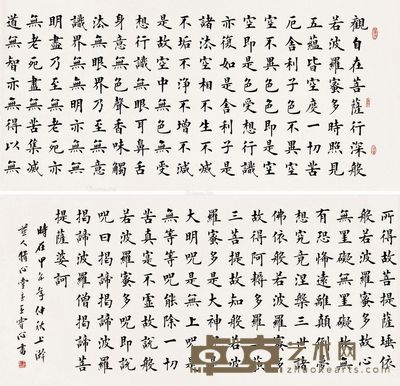 觀自在菩薩行深般
若波羅蜜多時照見
五蘊皆空度一切苦
厄舍利子色不異空
空不異色色即是空
空即是色受想行識
亦復如是舍利子是
諸法空相不生不滅
不垢不淨不增不減
是故空中無色無受
想行識無眼耳鼻舌
身意無色聲香味觸
法無眼界乃至無意
識界無無明亦無無
明盡乃至無老死亦
無老死盡無苦集滅
道無智亦無得以無
所得故菩提薩埵依
般若波羅蜜多故心
無罣礙無罣礙故無
有恐怖遠離顛倒夢
想究竟涅槃三世諸
佛依般若波羅蜜多
故得阿耨多羅三藐
三菩提故知般若波
羅蜜多是大神呪是
大明呪是無上呪是
無等等呪能除一切
苦真實不虛故說般
若波羅蜜多呪即說
呪曰揭諦揭諦波羅
揭諦波羅僧揭諦菩
提薩婆訶
時在甲午年仲秋上澣
心書
艺术网